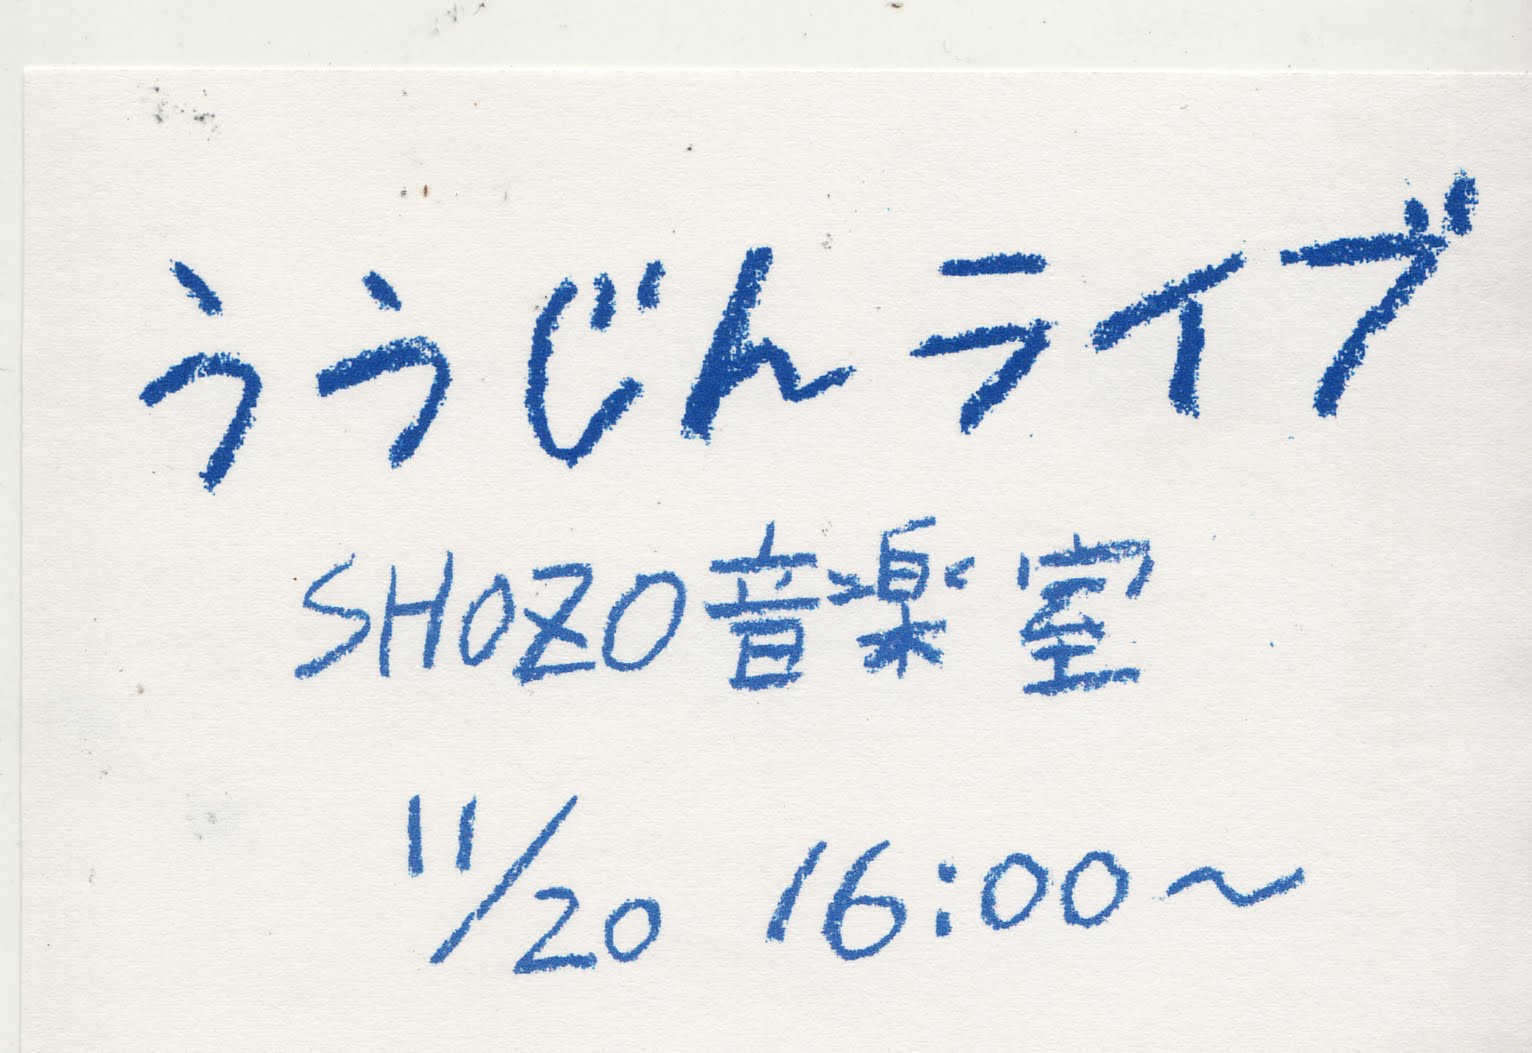 ううじんライブ
SHOZO音楽室
11/20 16:00~